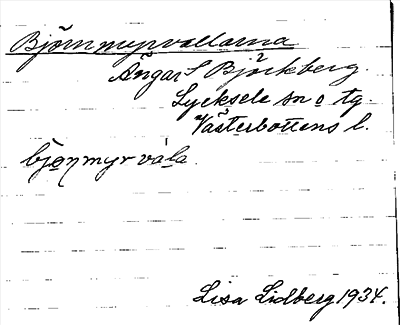 Björnmyrvallarna
Ängar S Björkberg.
Lycksele sn o tg.
Västerbottens l.
bjo̱ŋmyrvàḻa.
Lisa Lidberg 1934.